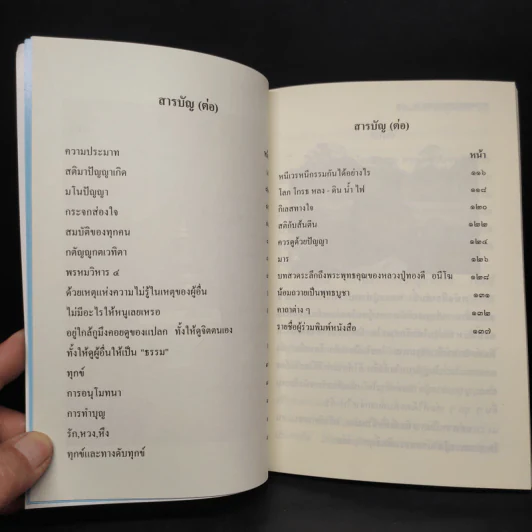 สารบัญ (ต่อ)
ความประมาท
สติมาปัญญาเกิด
มโนปัญญา
กระจกส่องใจ
สมบัติของทุกคน
กตัญญูกตเวทิตา
พรหมวิหาร ๔
ด้วยเหตุแห่งความไม่รู้ในเหตุของผู้อื่น
ไม่มีอะไรให้หนูเลยเหรอ
อยู่ใกล้กูมึงคอยดูของแปลก ทั้งให้ดูจิตตนเอง
ทั้งให้ดูผู้อื่นให้เป็น "ธรรม"
ทุกข์
การอนุโมทนา
การทำบุญ
รัก,หวง,หึง
ทุกข์และทางดับทุกข์
สารบัญ (ต่อ)
หน้า
หนีเวรหนีกรรมกันได้อย่างไร ๑๑๖
โลภ โกรธ หลง - ดิน น้ำ ไฟ ๑๑๘
กิเลสทางใจ ๑๒๐
สติกับสันดีน ๑๒๒
ควรดูด้วยปัญญา ๑๒๔
มาร ๑๒๖
บทสวดระลึกถึงพระพุทธคุณของหลวงปู่ทองดี อนีโฆ ๑๒๘
น้อมถวายเป็นพุทธบูชา ๑๓๑
คาถาต่าง ๆ ๑๓๒
รายชื่อผู้ร่วมพิมพ์หนังสือ ๑๓๗